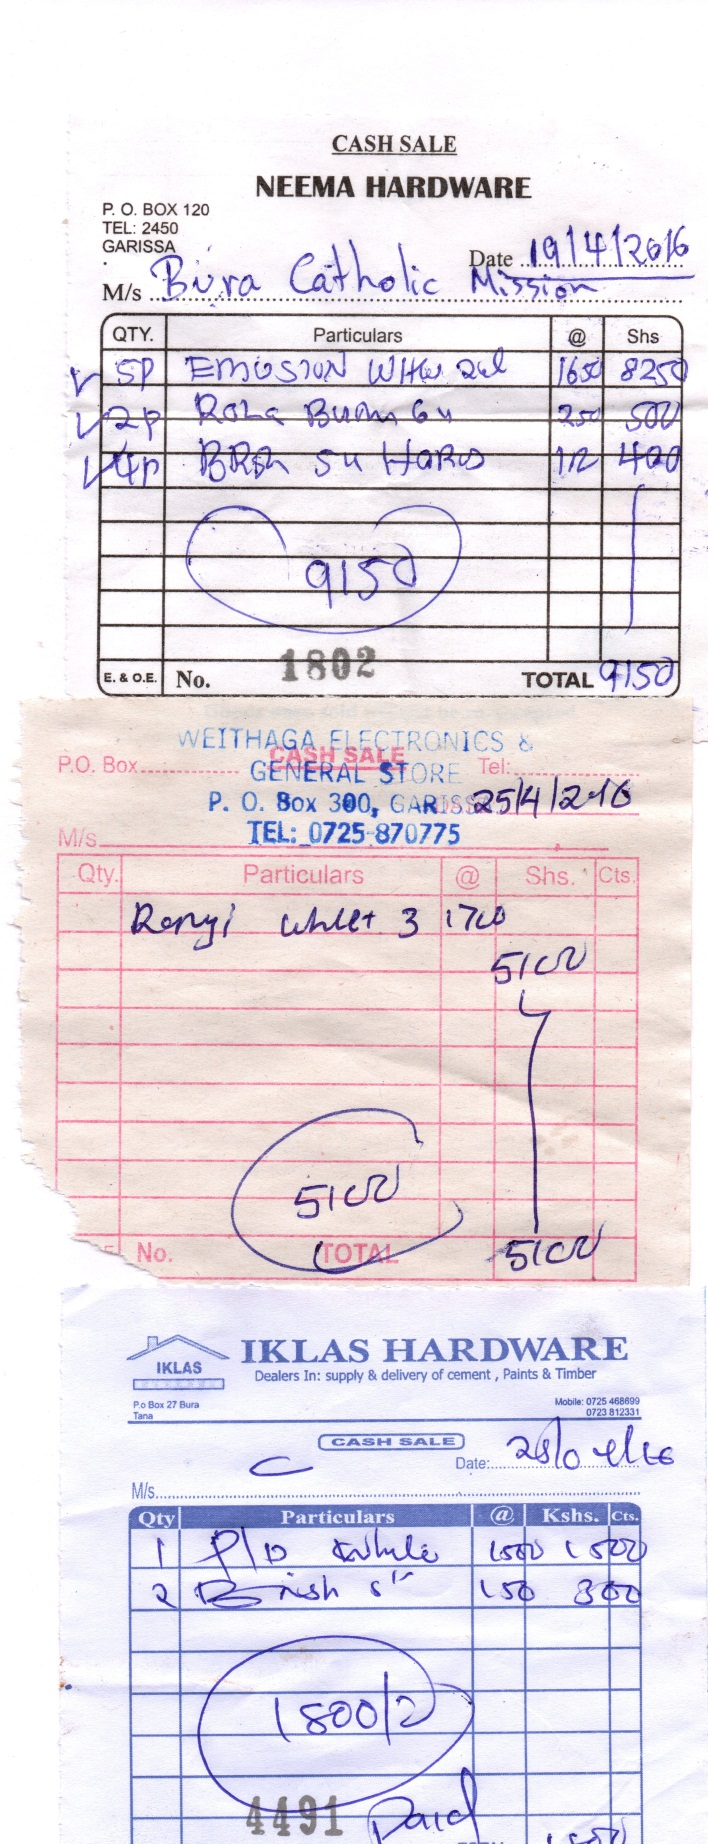 CASH SALE
NEEMA HARDWARE
P. O. BOX 120
TEL: 2450
GARISSA
Date 19/4/2016
M/s Bura Catholic Mission
QTY. Particulars @ Shs
5P EMUSION 1650 8250
2P 250 500
4P 400
9150
1802
E. & O.E. No. TOTAL 9150
WEITHAGA ELECTRONICS &
CASH SALE
P.O. Box Tel:
GENERAL STORE
P. O. Box 300, GARISSA 25/4/2016
TEL: 0725-870775
M/s
Qty. Particulars @ Shs. Cts.
Rangi 3 1700
5100
5100
No. TOTAL 5100
IKLAS
IKLAS HARDWARE
Dealers In: supply & delivery of cement , Paints & Timber
P.o Box 27 Bura
Tana
Mobile: 0725 468699
0723 812331
CASH SALE
Date: 28/04/16
M/s
Qty Particulars @ Kshs. Cts.
1 1500 1500
2 150 300
1800/2
4491 Paid